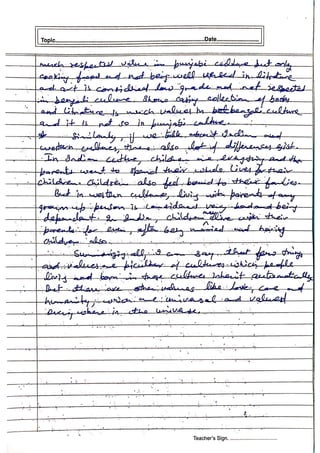 Topic Date
much respected value in punjabi culture but only
cooking food and not being well versed in literature
and art is considered low grade and not respected
in bengali culture. Show casing collection of books
and literature is much values in bengali culture
and it is not so in punjabi culture.
Similarly, if we talk about Indian and
western cultures, there also lot of differences exist.
In Indian culture, children are everything and the
parents want to spend their whole lives for their
children. Children also feel bound to their families.
But in western culture, living with parents of any
grown up person is considered very bad and being
dependant. In India, children live with their
parents for even, after being married and having
children also.
Summarizing all, I can say that few things
and values are of cultures which people
living and born in these cultures inherit automatically
But there are other values like love, care and
humanity, which are universal and valued
every where in the universe.
Teacher's Sign.